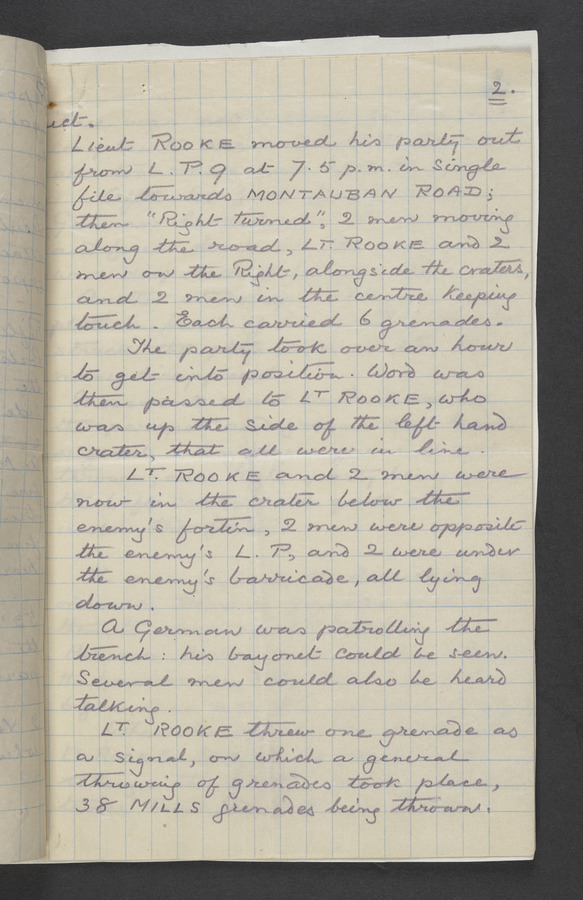 2.
Lieut ROOKE moved his party out
from L.P. 9 at 7.5 p.m. in single
file towards MONTAUBAN ROAD;
then "Right turned", 2 men moving
along the road, LT. ROOKE and 2
men on the Right, alongside the craters,
and 2 men in the centre keeping
touch. Each carried 6 grenades.
The party took over an hour
to get into position. Word was
then passed to LT ROOKE, who
was up the side of the left hand
crater, that all were in line.
LT. ROOKE and 2 men were
now in the crater below the
enemy's fortin, 2 men were opposite
the enemy's L.P., and 2 were under
the enemy's barricade, all lying
down.
A German was patrolling the
trench: his bayonet could be seen.
Several men could also be heard
talking.
LT. ROOKE threw one grenade as
a signal, on which a general
throwing of grenades took place,
38 MILLS grenades being thrown.